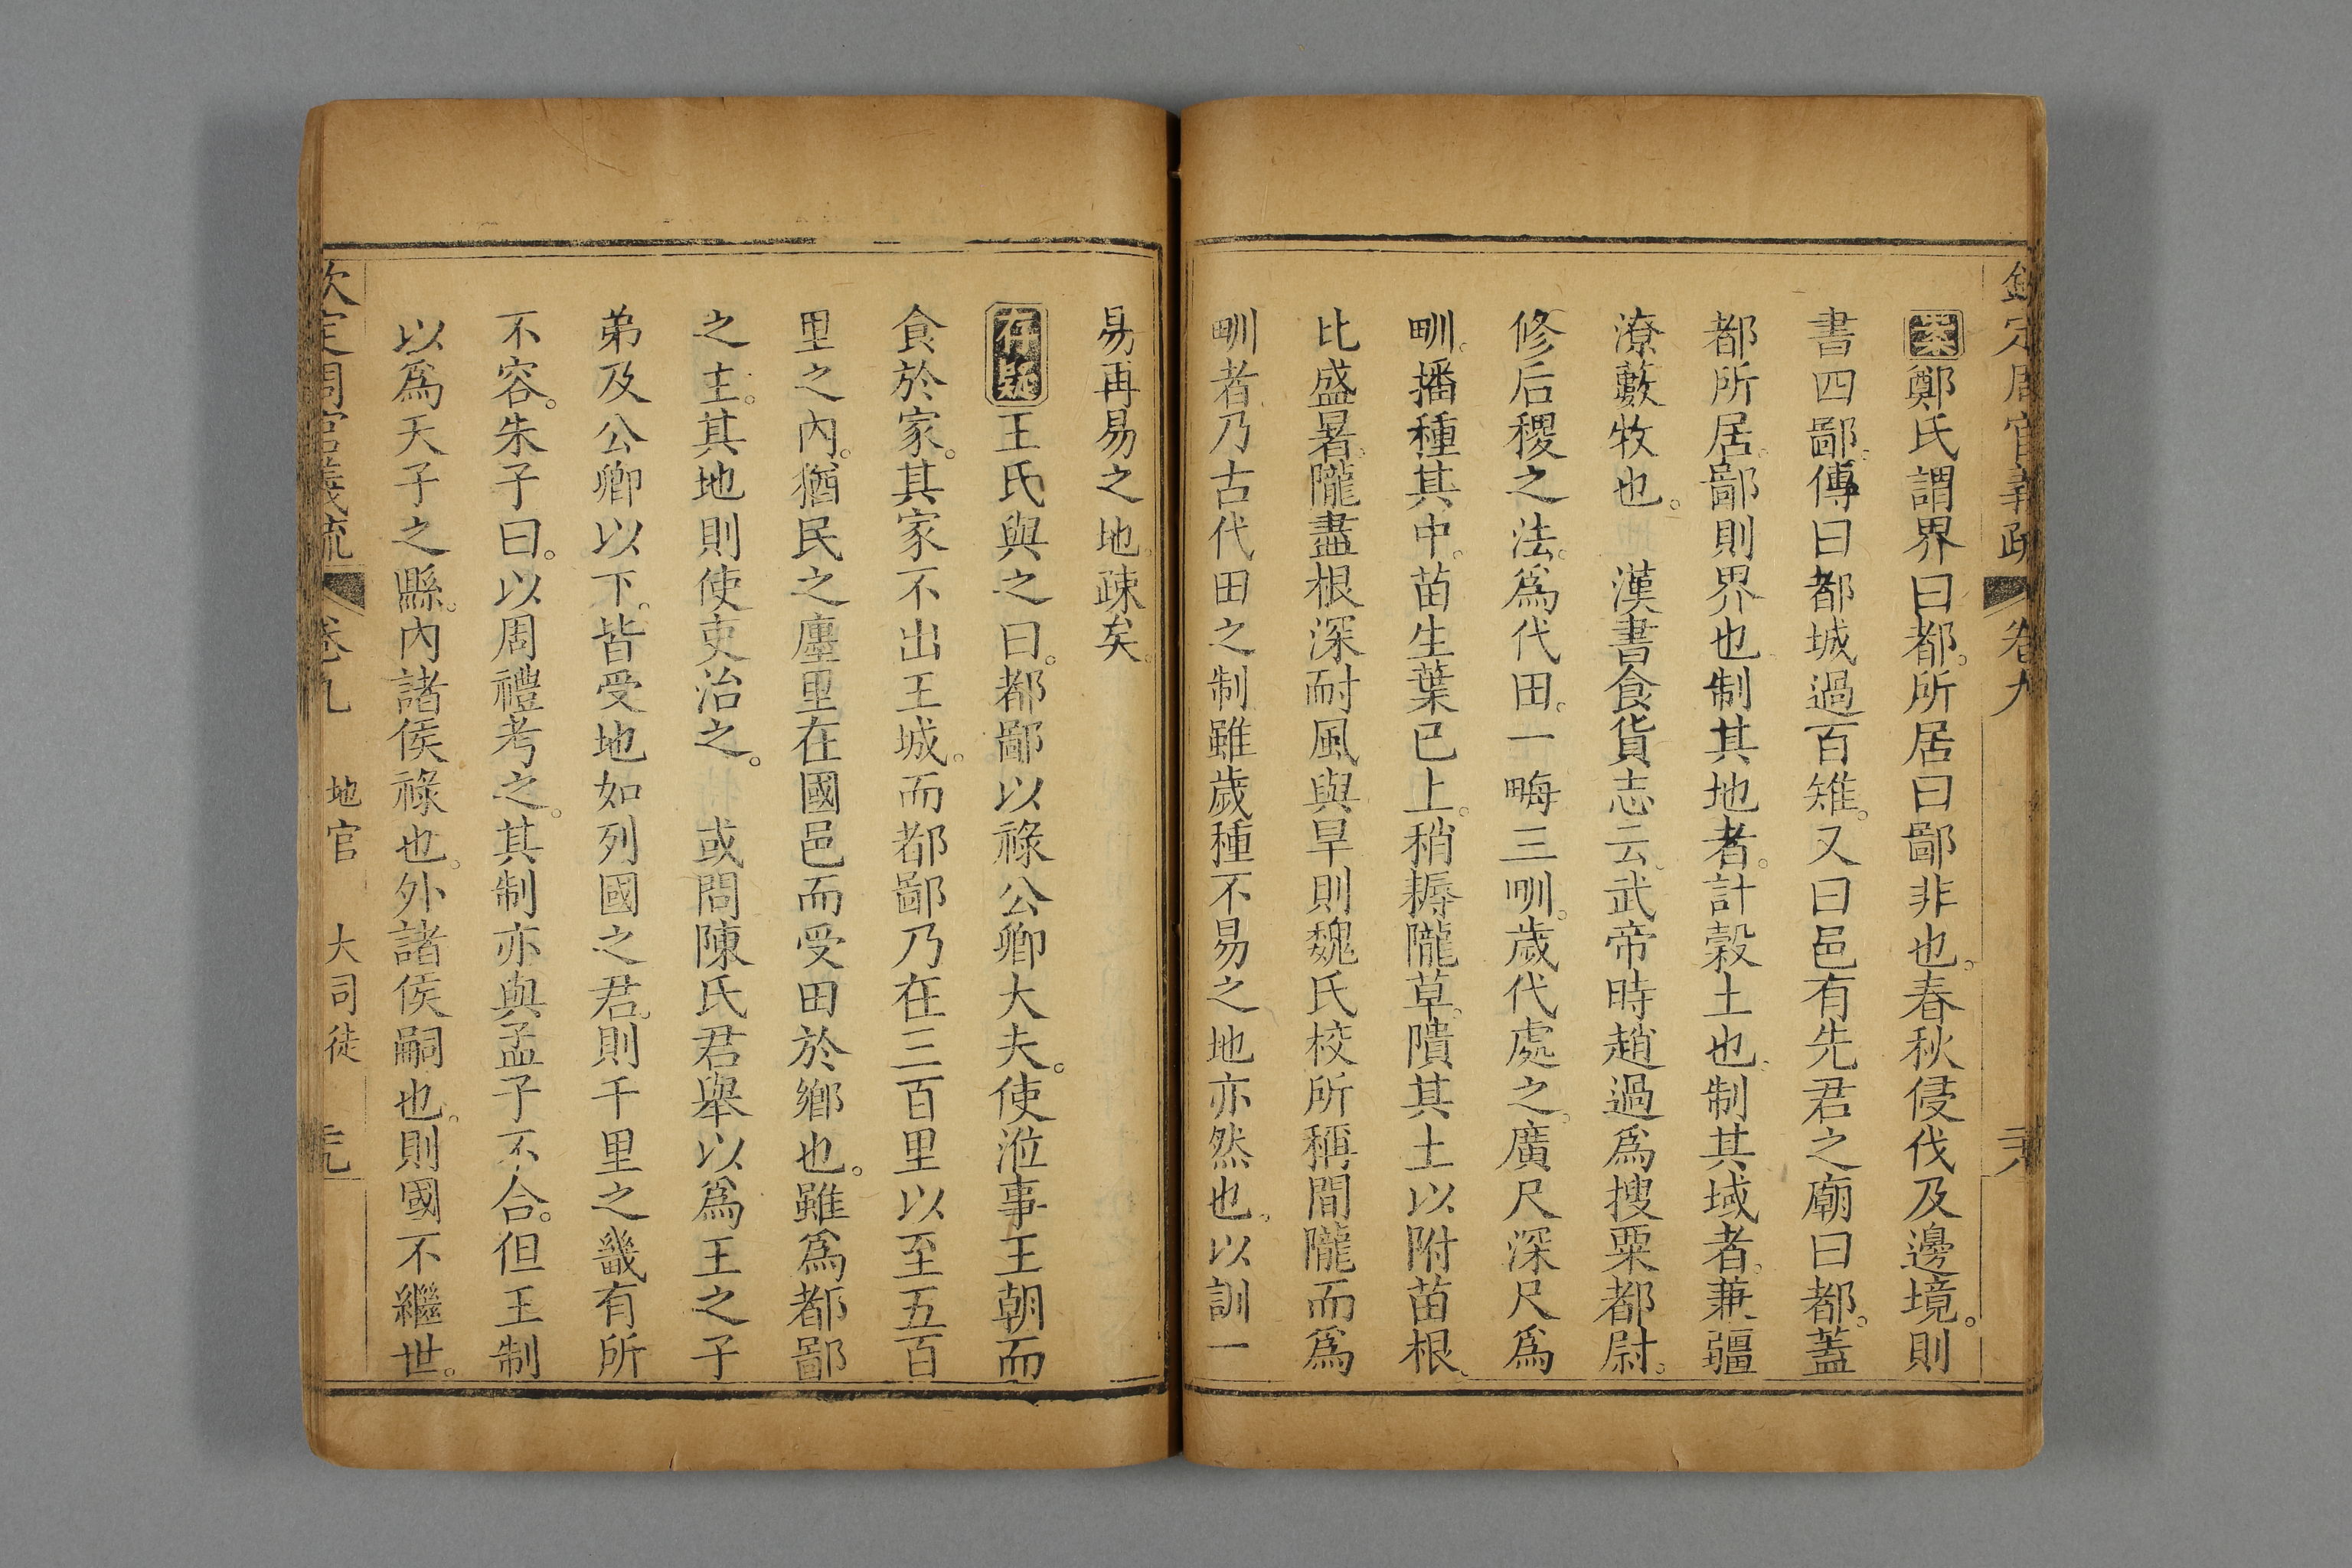 欽定周官義疏 卷九 天
案鄭氏謂界曰都。所居曰鄙非也。春秋侵伐及邊境。則
書四鄙。傳曰都城過百雉。又曰邑有先君之廟曰都。蓋
都所居。鄙則界也制其地者。計穀土也。制其域者。兼疆
潦藪牧也。 漢書食貨志云。武帝時趙過爲搜粟都尉。
修后稷之法。爲代田。一畮三甽。歲代處之。廣尺深尺爲
甽。播種其中。苗生葉已上。稍耨隴草。隤其土以附苗根。
比盛暑。隴盡根深耐風與旱則魏氏校所稱間隴而爲
甽者乃古代田之制雖歲種不易之地亦然也。以訓一
易再易之地。疎矣。
存疑王氏與之曰。都鄙以祿公卿大夫。使涖事王朝而
食於家。其家不出王城。而都鄙乃在三百里以至五百
里之內。猶民之廛里在國邑而受田於鄉也。雖爲都鄙
之主。其地則使吏治之。 或問陳氏君舉以爲王之子
弟及公卿以下。皆受地如列國之君。則千里之畿有所
不容。朱子曰。以周禮考之。其制亦與孟子不合。但王制
以爲天子之縣。內諸侯祿也。外諸侯嗣也。則國不繼世。
欽定周官義疏 卷九 地官 大司徒